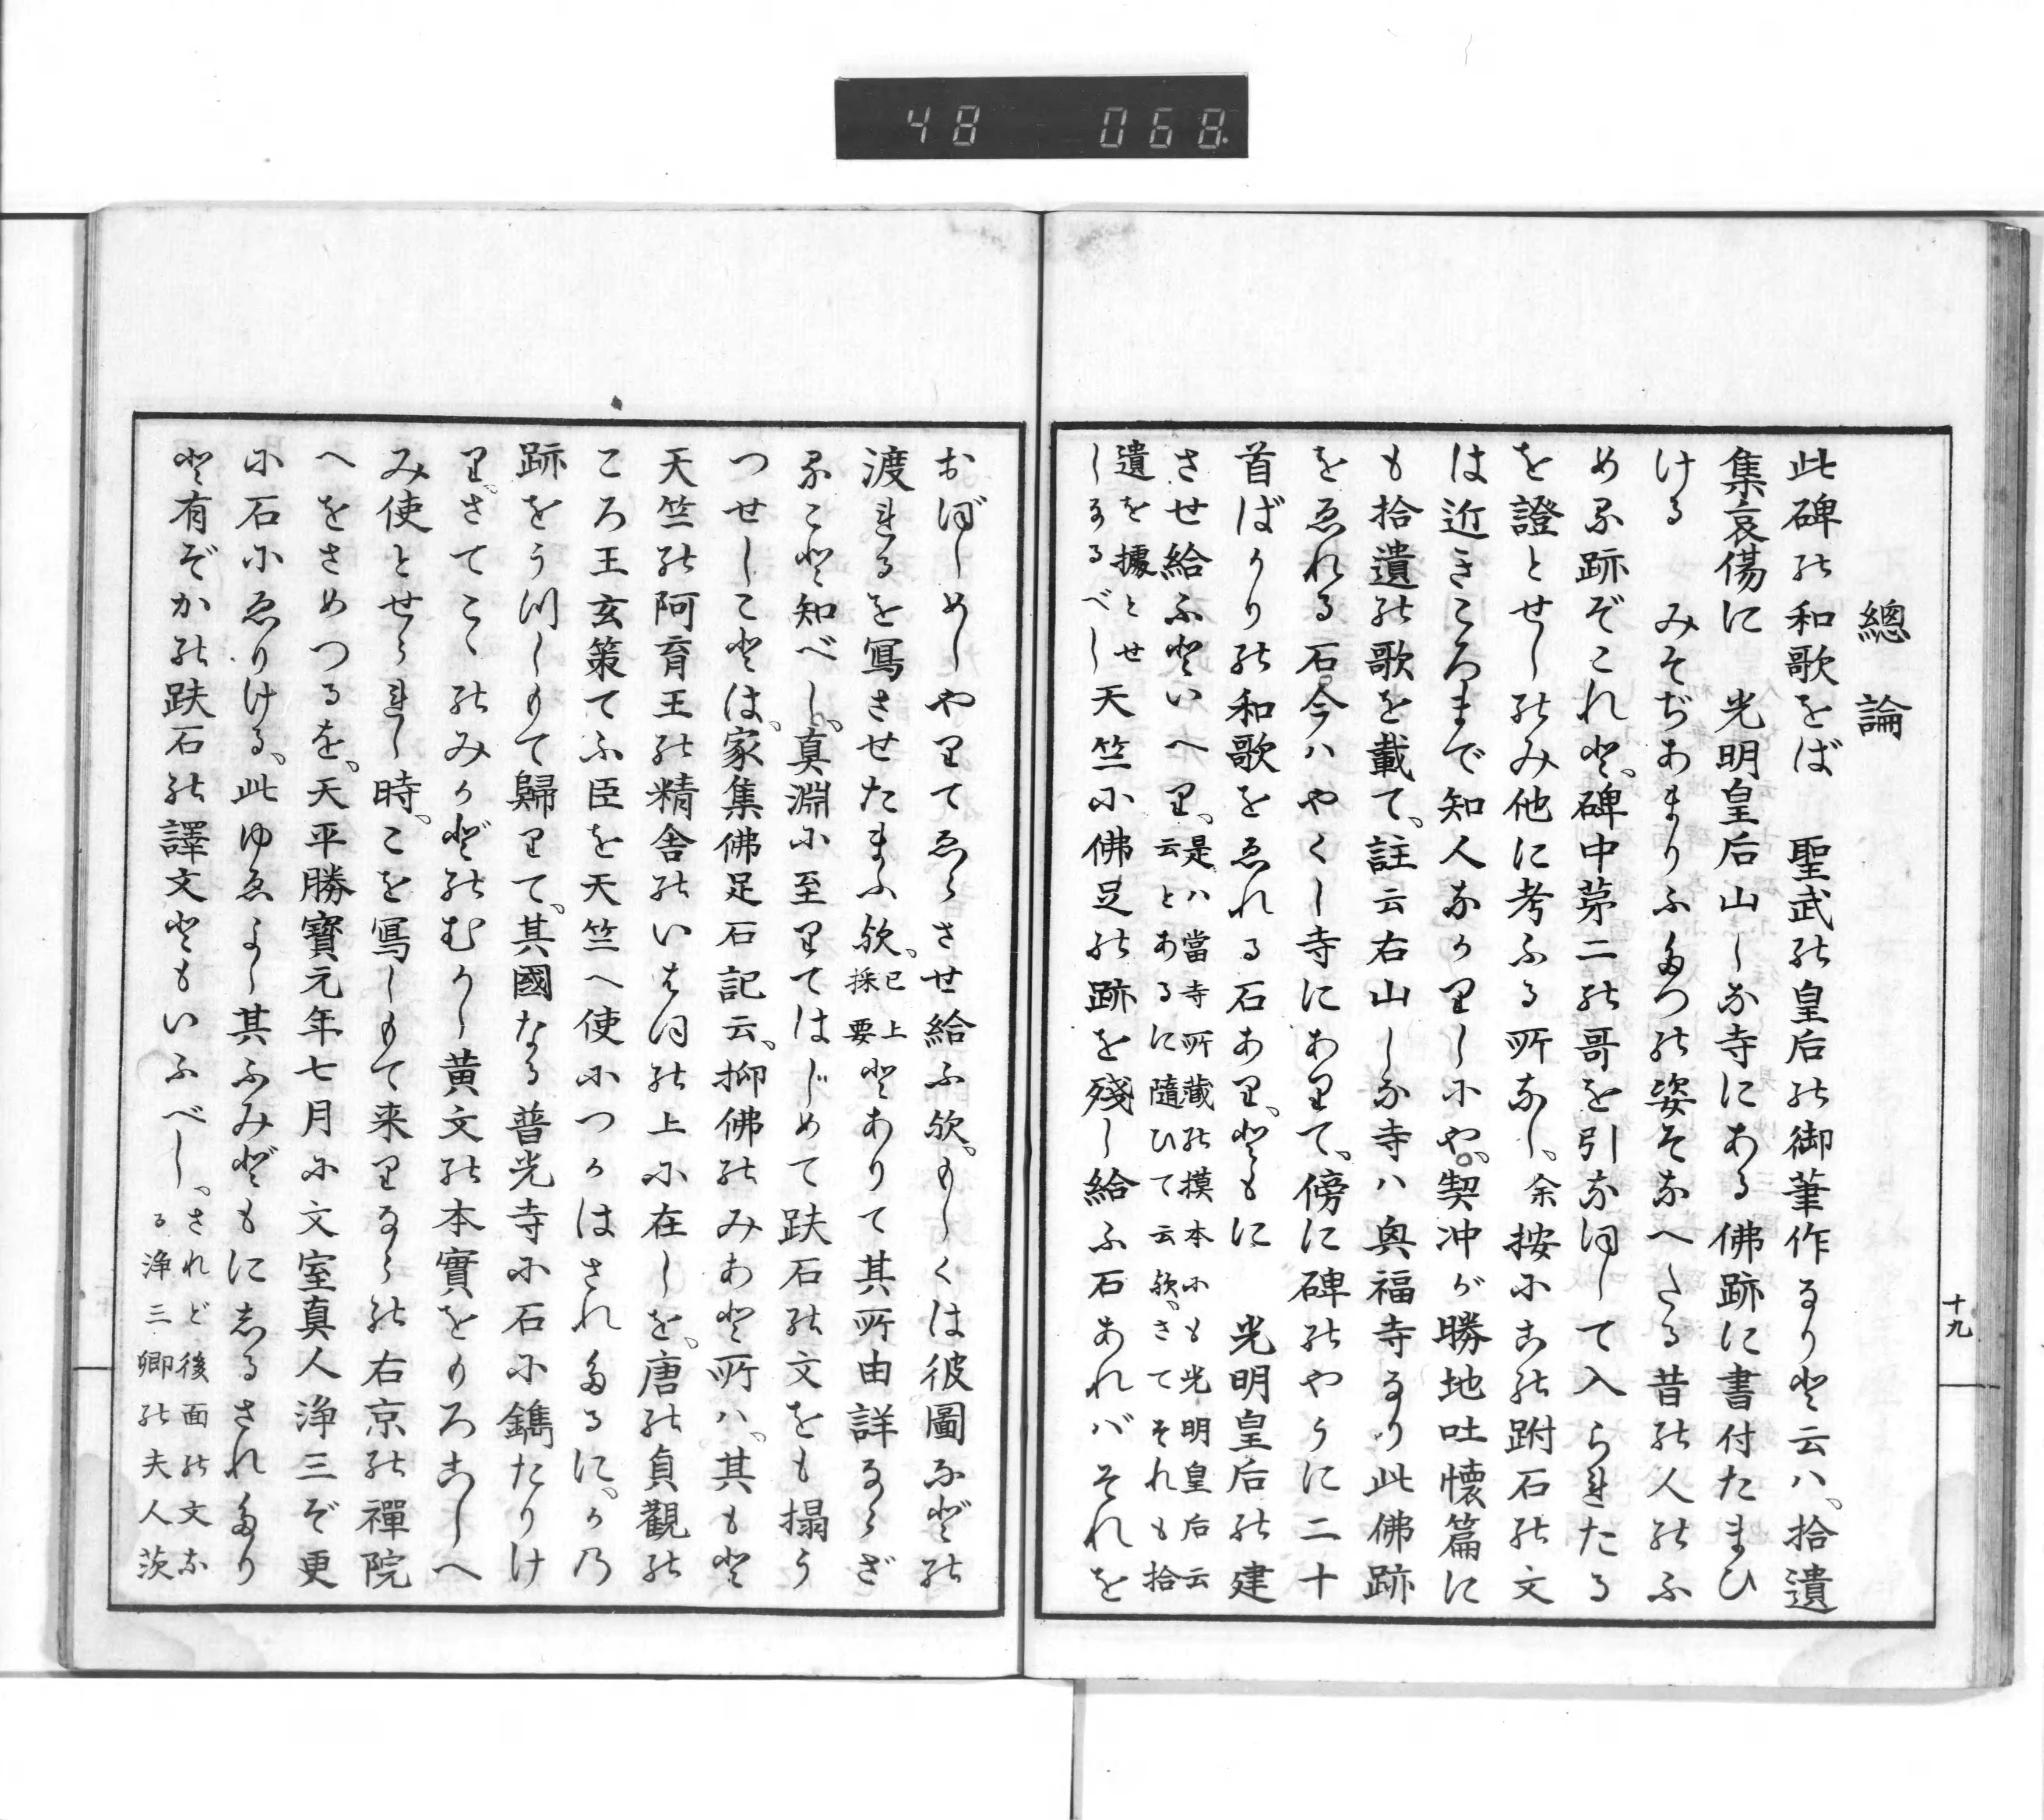 48 068.
總論
此碑の和歌をば 聖武の皇后の御筆作なりと云ハ、拾遺
集哀傷に 光明皇后山しな寺にある佛跡に書付たまひ
ける みそぢあまりふたつの姿そなへたる昔の人のふ
める跡ぞこれと、碑中第二の哥を引なほして入られたる
を證とせしのみ他に考ふる所なし、余按にこの跗石の文
は近きころまで知人なかりしにや。契冲が勝地吐懷篇に
も拾遺の歌を載て、註云右山しな寺ハ興福寺なり此佛跡
をゑれる石今ハやくし寺にありて、傍に碑のやうに二十
首ばかりの和歌をゑれる石あり、ともに 光明皇后の建
させ給ふといへり、是ハ當寺所藏の摸本にも光明皇后云
云とあるに隨ひて云歟、さてそれも拾
遺を據とせ
しなるべし天竺に佛足の跡を殘し給ふ石あれバそれを
十九
おぼしめしやりてゑらさせ給ふ歟、もしくは彼圖などの
渡れるを寫させたまふ歟、已上
採要とありて其所由詳ならざ
ること知べし、真淵に至りてはじめて趺石の文をも搨う
つせしことは、家集佛足石記云、抑佛のみあと所ハ、其もと
天竺の阿育王の精舎のいはほの上に在しを、唐の貞觀の
ころ王玄策てふ臣を天竺へ使につかはされたるに、かの
跡をうつしもて歸りて、其國なる普光寺に石に鐫たりけ
り、さてこゝのみかどのむかし黄文の本實をもろこしへ
み使とせられし時、こを寫しもて来りならの右京の禪院
へをさめつるを、天平勝寶元年七月に文室真人浄三ぞ更
に石にゑりける、此ゆゑよし其ふみどもにしるされたり
と有ぞかの趺石の譯文ともいふべし、されど後面の文な
る浄三卿の夫人茨